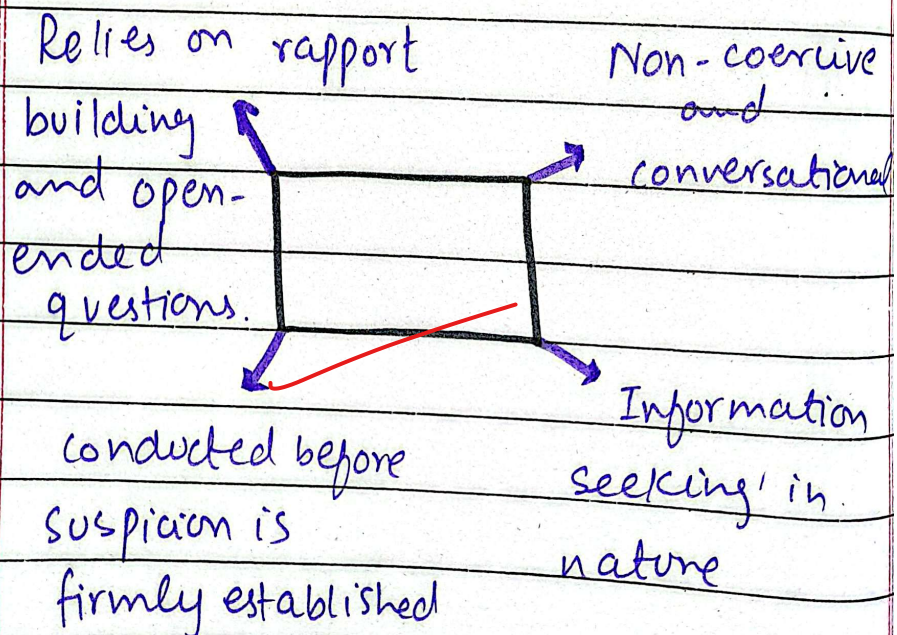 Relies on rapport
building
and open-
ended
questions.
Non-coercive
and
conversational
conducted before
suspicion is
firmly established
Information
seeking' in
nature